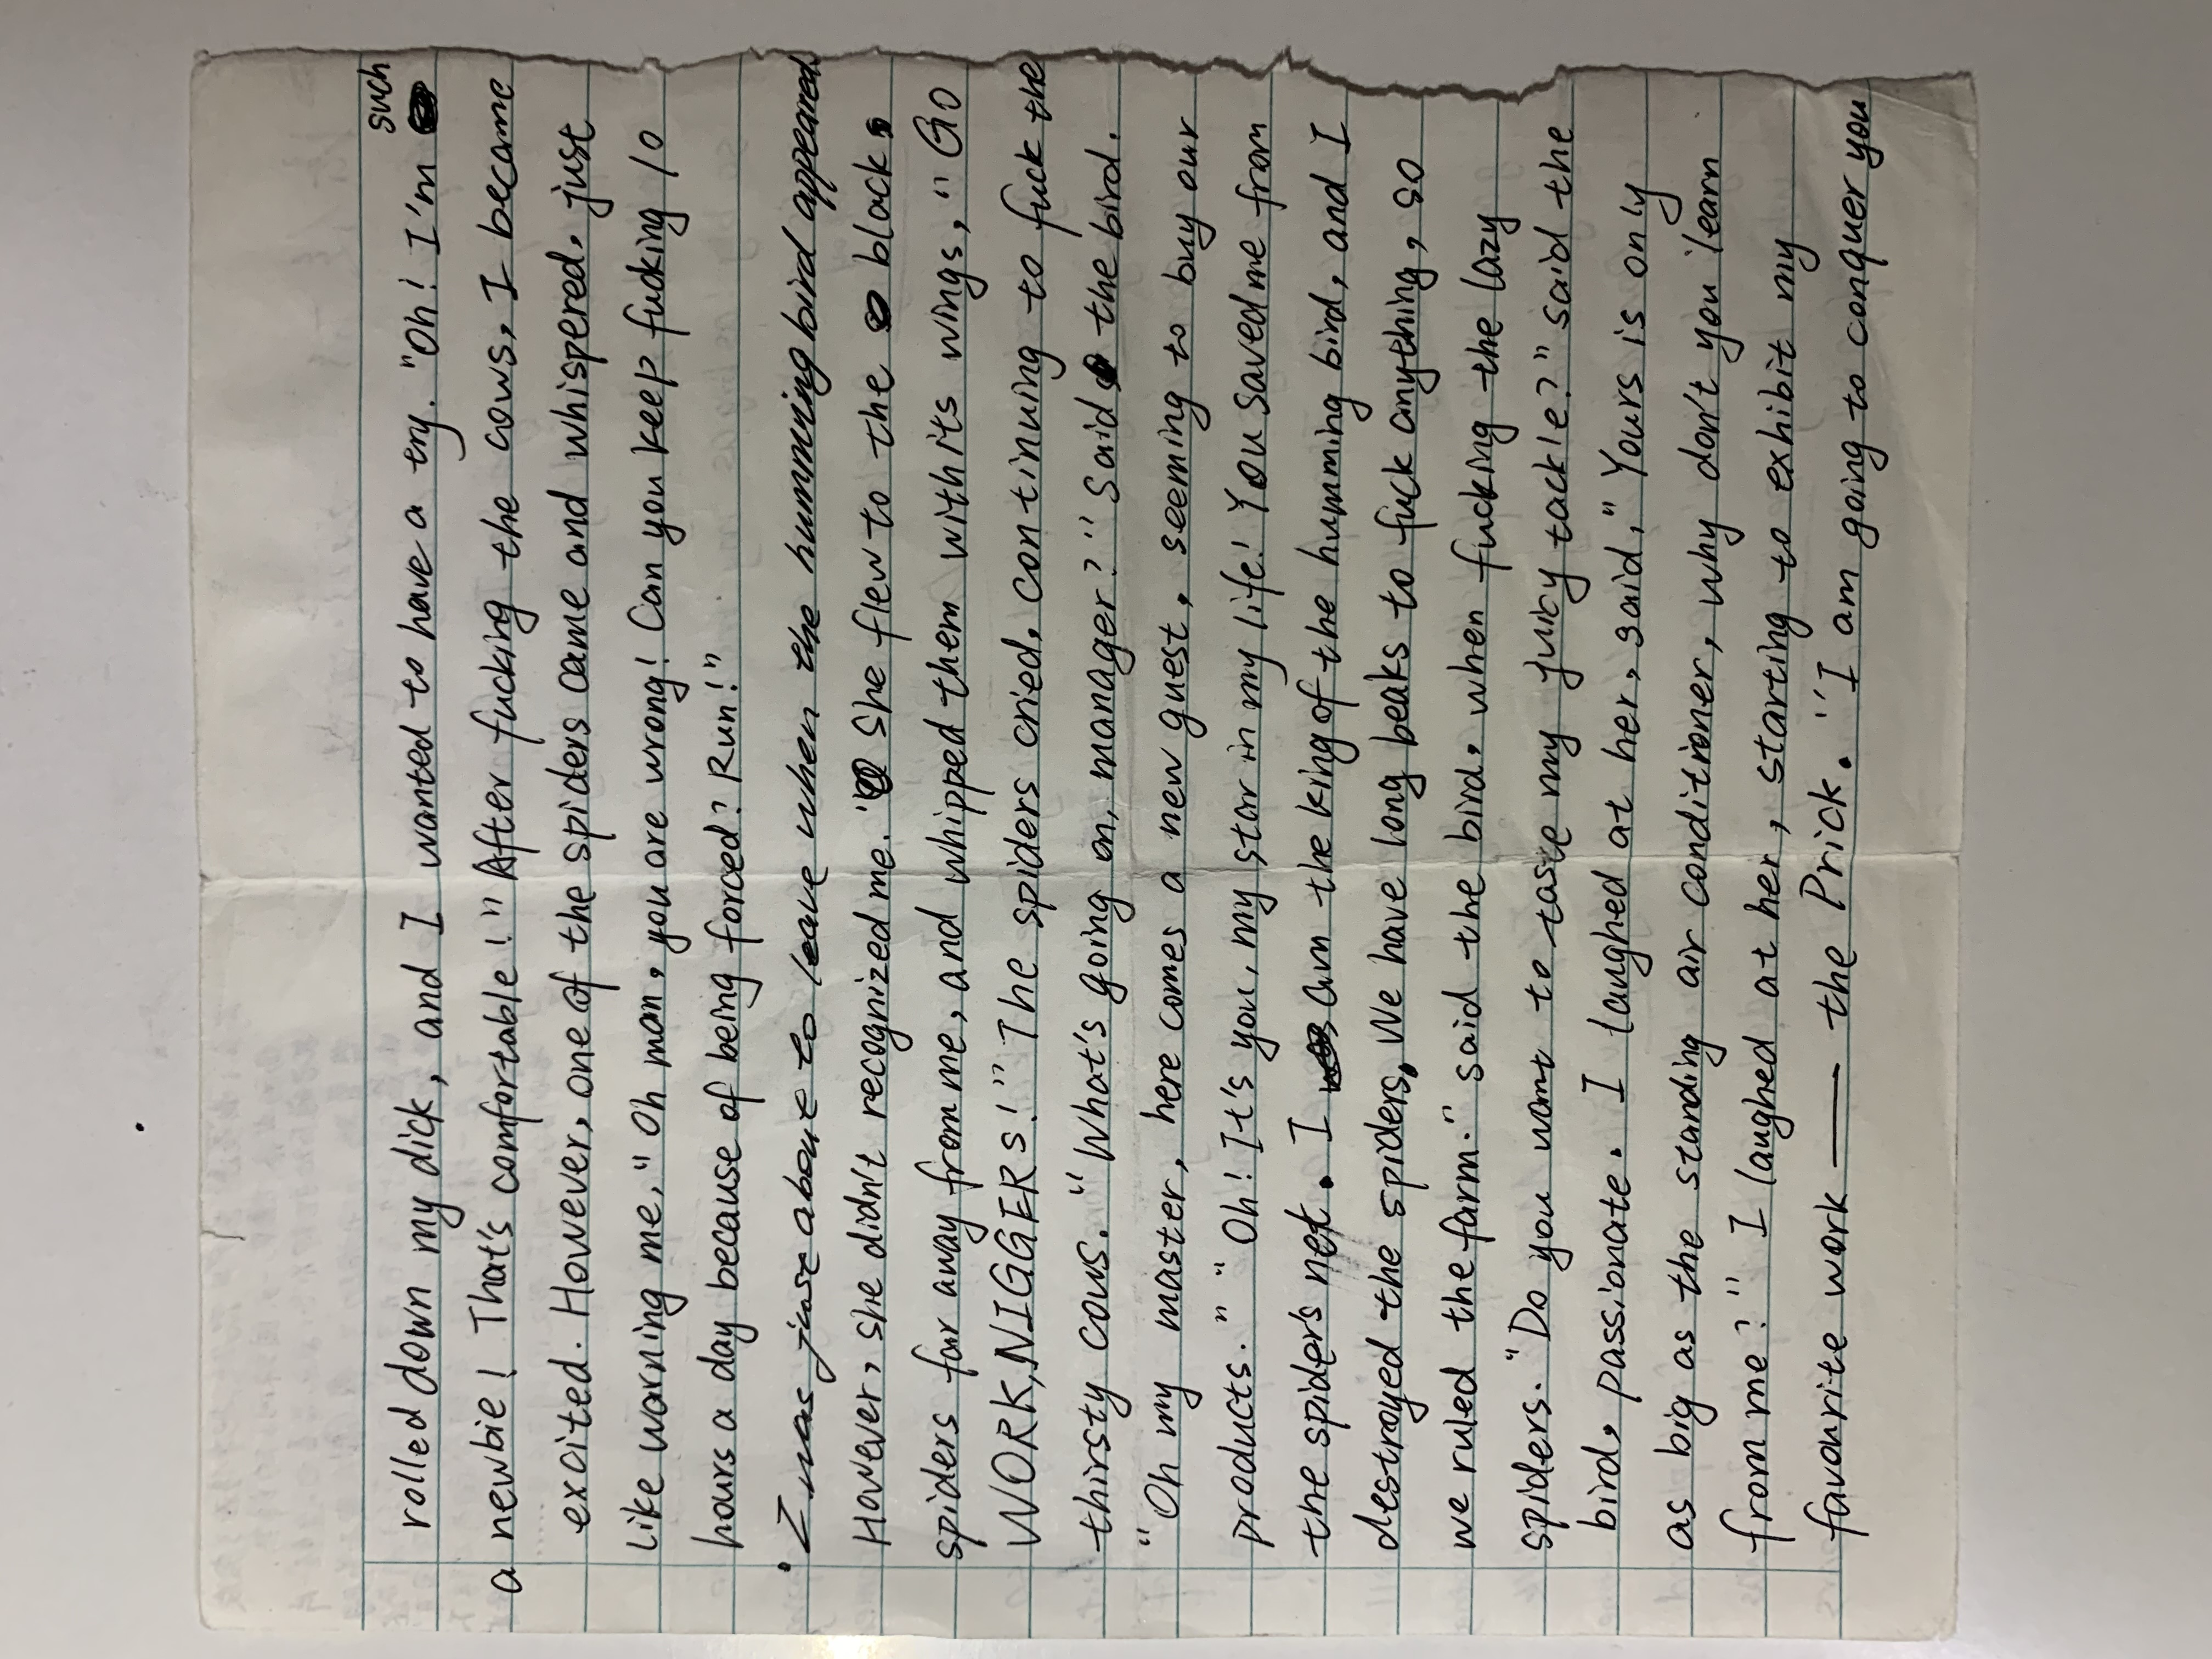 rolled down my dick, and I wanted to have a try. "Oh! I'm such
a newbie! That's comfortable!" After fucking the cows, I became
excited. However, one of the spiders came and whispered, just
like warning me, "Oh man, you are wrong! Can you keep fucking 10
hours a day because of being forced? Run!"
I was just about to leave when the humming bird appeared.
However, she didn't recognized me. She flew to the black
spiders far away from me, and whipped them with its wings, "GO
WORK, NIGGERS!" The spiders cried, continuing to fuck the
thirsty cows. "What's going on, manager?" Said the bird.
"Oh my master, here comes a new guest, seeming to buy our
products." "Oh! It's you, my star in my life! You saved me from
the spider's net. I am the king of the humming bird, and I
destroyed the spiders. We have long beaks to fuck anything, so
we ruled the farm." said the bird, when fucking the lazy
spiders. "Do you want to taste my juicy tackle?" said the
bird, passionate. I laughed at her, said, "Yours is only
as big as the standing air conditioner, why don't you learn
from me?" I laughed at her, starting to exhibit my
favourite work —— the Prick. "I am going to conquer you